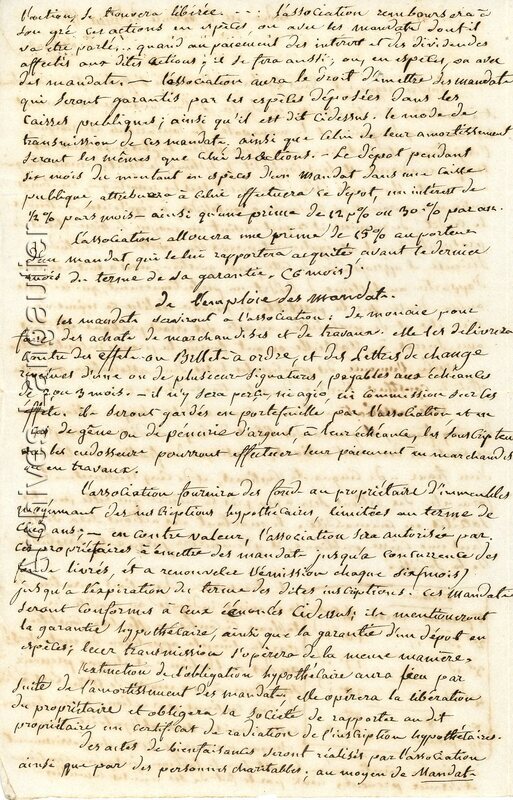 l'action, se trouvera libérée - - - : l'association remboursera à
son gré, ces actions en espèces, ou avec les mandats dont il
va être parlé; quand au paiement des interets et des dividendes
affectés aux dites actions; il se fera aussi; ou, en espèces, ou avec
des mandats. — l'association aura le droit d'émettre des mandats
qui seront garantis par les espèces déposées dans les
caisses publiques; ainsi qu'il est dit cidessus. le mode de
transmission de ces mandats, ainsi que celui de leur amortissement
seront les mêmes que celui des actions. - Le dépot pendant
six mois du montant en espèces d'un mandat dans une caisse
publique, attribuera à celui effectuera ce dépot, un interet de
½ % pars mois - ainsi qu'une prime de 12 p% ou 30 % par an.
l'association allouera une prime de 15 % au porteur
d'un mandat, qui le lui rapportera acquité avant le dernier
mois du terme de sa garantie. (6 mois)
de l'emploie des mandats.
les mandats serviront à l'association: de monaie pour
faire des achats de marchandises et de travaux. elle les délivrera
contre des effets ou Billets à ordre, et des Lettres de change
revetues d'une ou de plusieurs signatures, payables aux échéances
de 2 ou 3 mois. — il n'y sera perçu, ni agio, ni commission sur les
effets. ils seront gardés en portefeuille par l'association et en
cas de gêne ou de pénurie d'argent, à leur échéance, les souscripteurs
ou les endosseurs pourront effectuer leur paiement en marchandises
ou en travaux.
l'association fournira des fonds au propriétaire d'immeubles
moyennant des inscriptions hypothécaires, limitées au terme de
cinq ans; — en contre valeur, l'association sera autorisée par
ces propriétaires à émettre des mandats jusqu'à concurrence des
fonds livrés, et a renouveler l'émission chaque six (mois)
jusqu'à l'expiration du terme des dites inscriptions. Ces Mandats
seront conformes à ceux énoncés cidessus; ils mentioneront
la garantie hypothécaire, ainsi que la garantie d'un depot en
espèces; leur transmission s'opérera de la meme manière.
l'extinction de l'obligation hypothécaire aura lieu par
suite de l'amortissement des mandats. elle opérera la libération
du propriétaire et obligera la Société de rapporter au dit
propriétaire un certificat de radiation de l'inscription hypothécaire.
des actes de bienfaisance seront réalisés par l'association
ainsi que par des personnes charitables, au moyen de Mandats